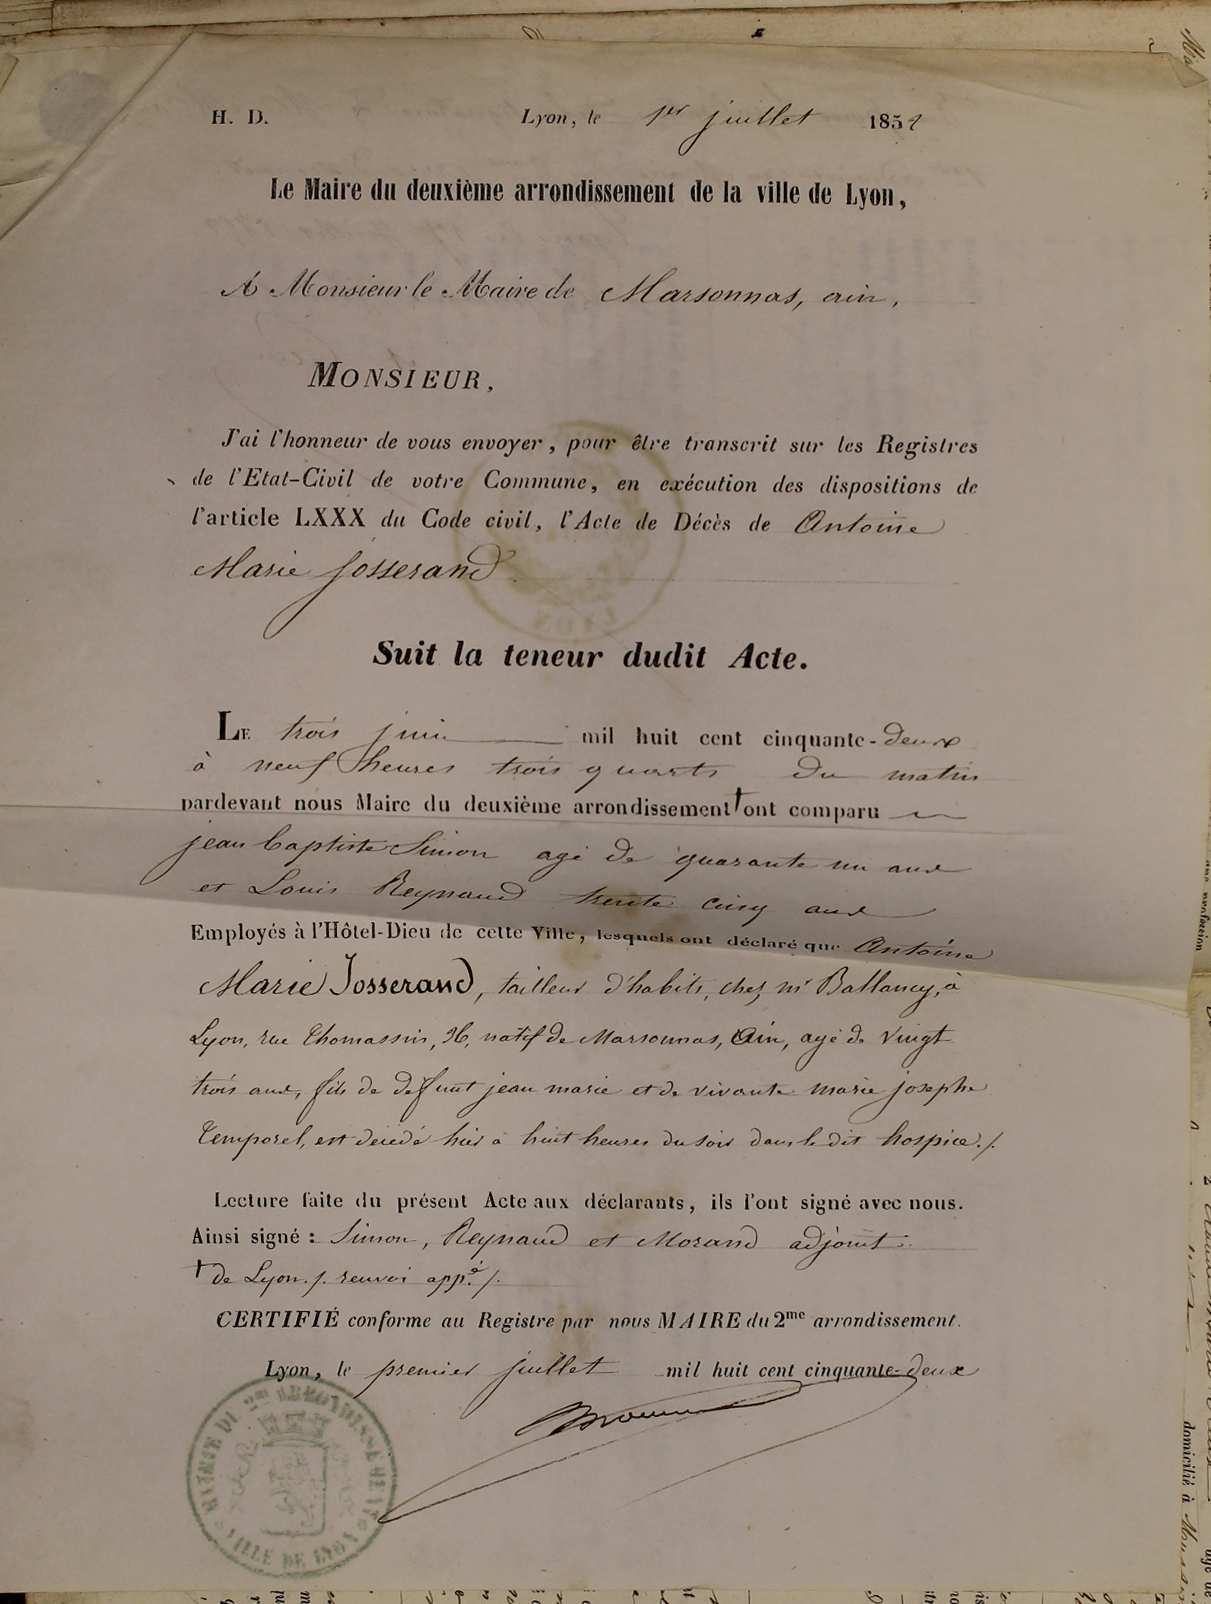 H. D.
Lyon, le 1er juillet 1852
Le Maire du deuxième arrondissement de la ville de Lyon,
A Monsieur le Maire de Marsonnas, ain,
MONSIEUR,
J'ai l'honneur de vous envoyer, pour être transcrit sur les Registres
de l'Etat-Civil de votre Commune, en exécution des dispositions de
l'article LXXX du Code civil, l'Acte de Décès de Antoine
Marie Josserand
Suit la teneur dudit Acte.
LE trois juin mil huit cent cinquante-deux
à neuf heures trois quarts du matin
pardevant nous Maire du deuxième arrondissement † ont comparu
jean baptiste Simon agé de quarante un ans
et Louis Reynaud trente cinq ans
Employés à l'Hôtel-Dieu de cette Ville, lesquels ont déclaré que Antoine
Marie Josserand, tailleur d'habits, chez mr Ballancy, à
Lyon, rue Thomassin, 36, natif de Marsonnas, Ain, agé de vingt
trois ans, fils de defunt jean marie et de vivante marie josephe
Temporel, est décédé hier à huit heures du soir dans le dit hospice ./.
Lecture faite du présent Acte aux déclarants, ils l'ont signé avec nous.
Ainsi signé : Simon, Reynaud et Morand adjoint.
† de Lyon ./. renvoi app.é ./.
CERTIFIÉ conforme au Registre par nous MAIRE du 2me arrondissement.
Lyon, le premier juillet mil huit cent cinquante-deux
MAIRIE DU 2me ARRONDISSEMENT
VILLE DE LYON
domicilié à